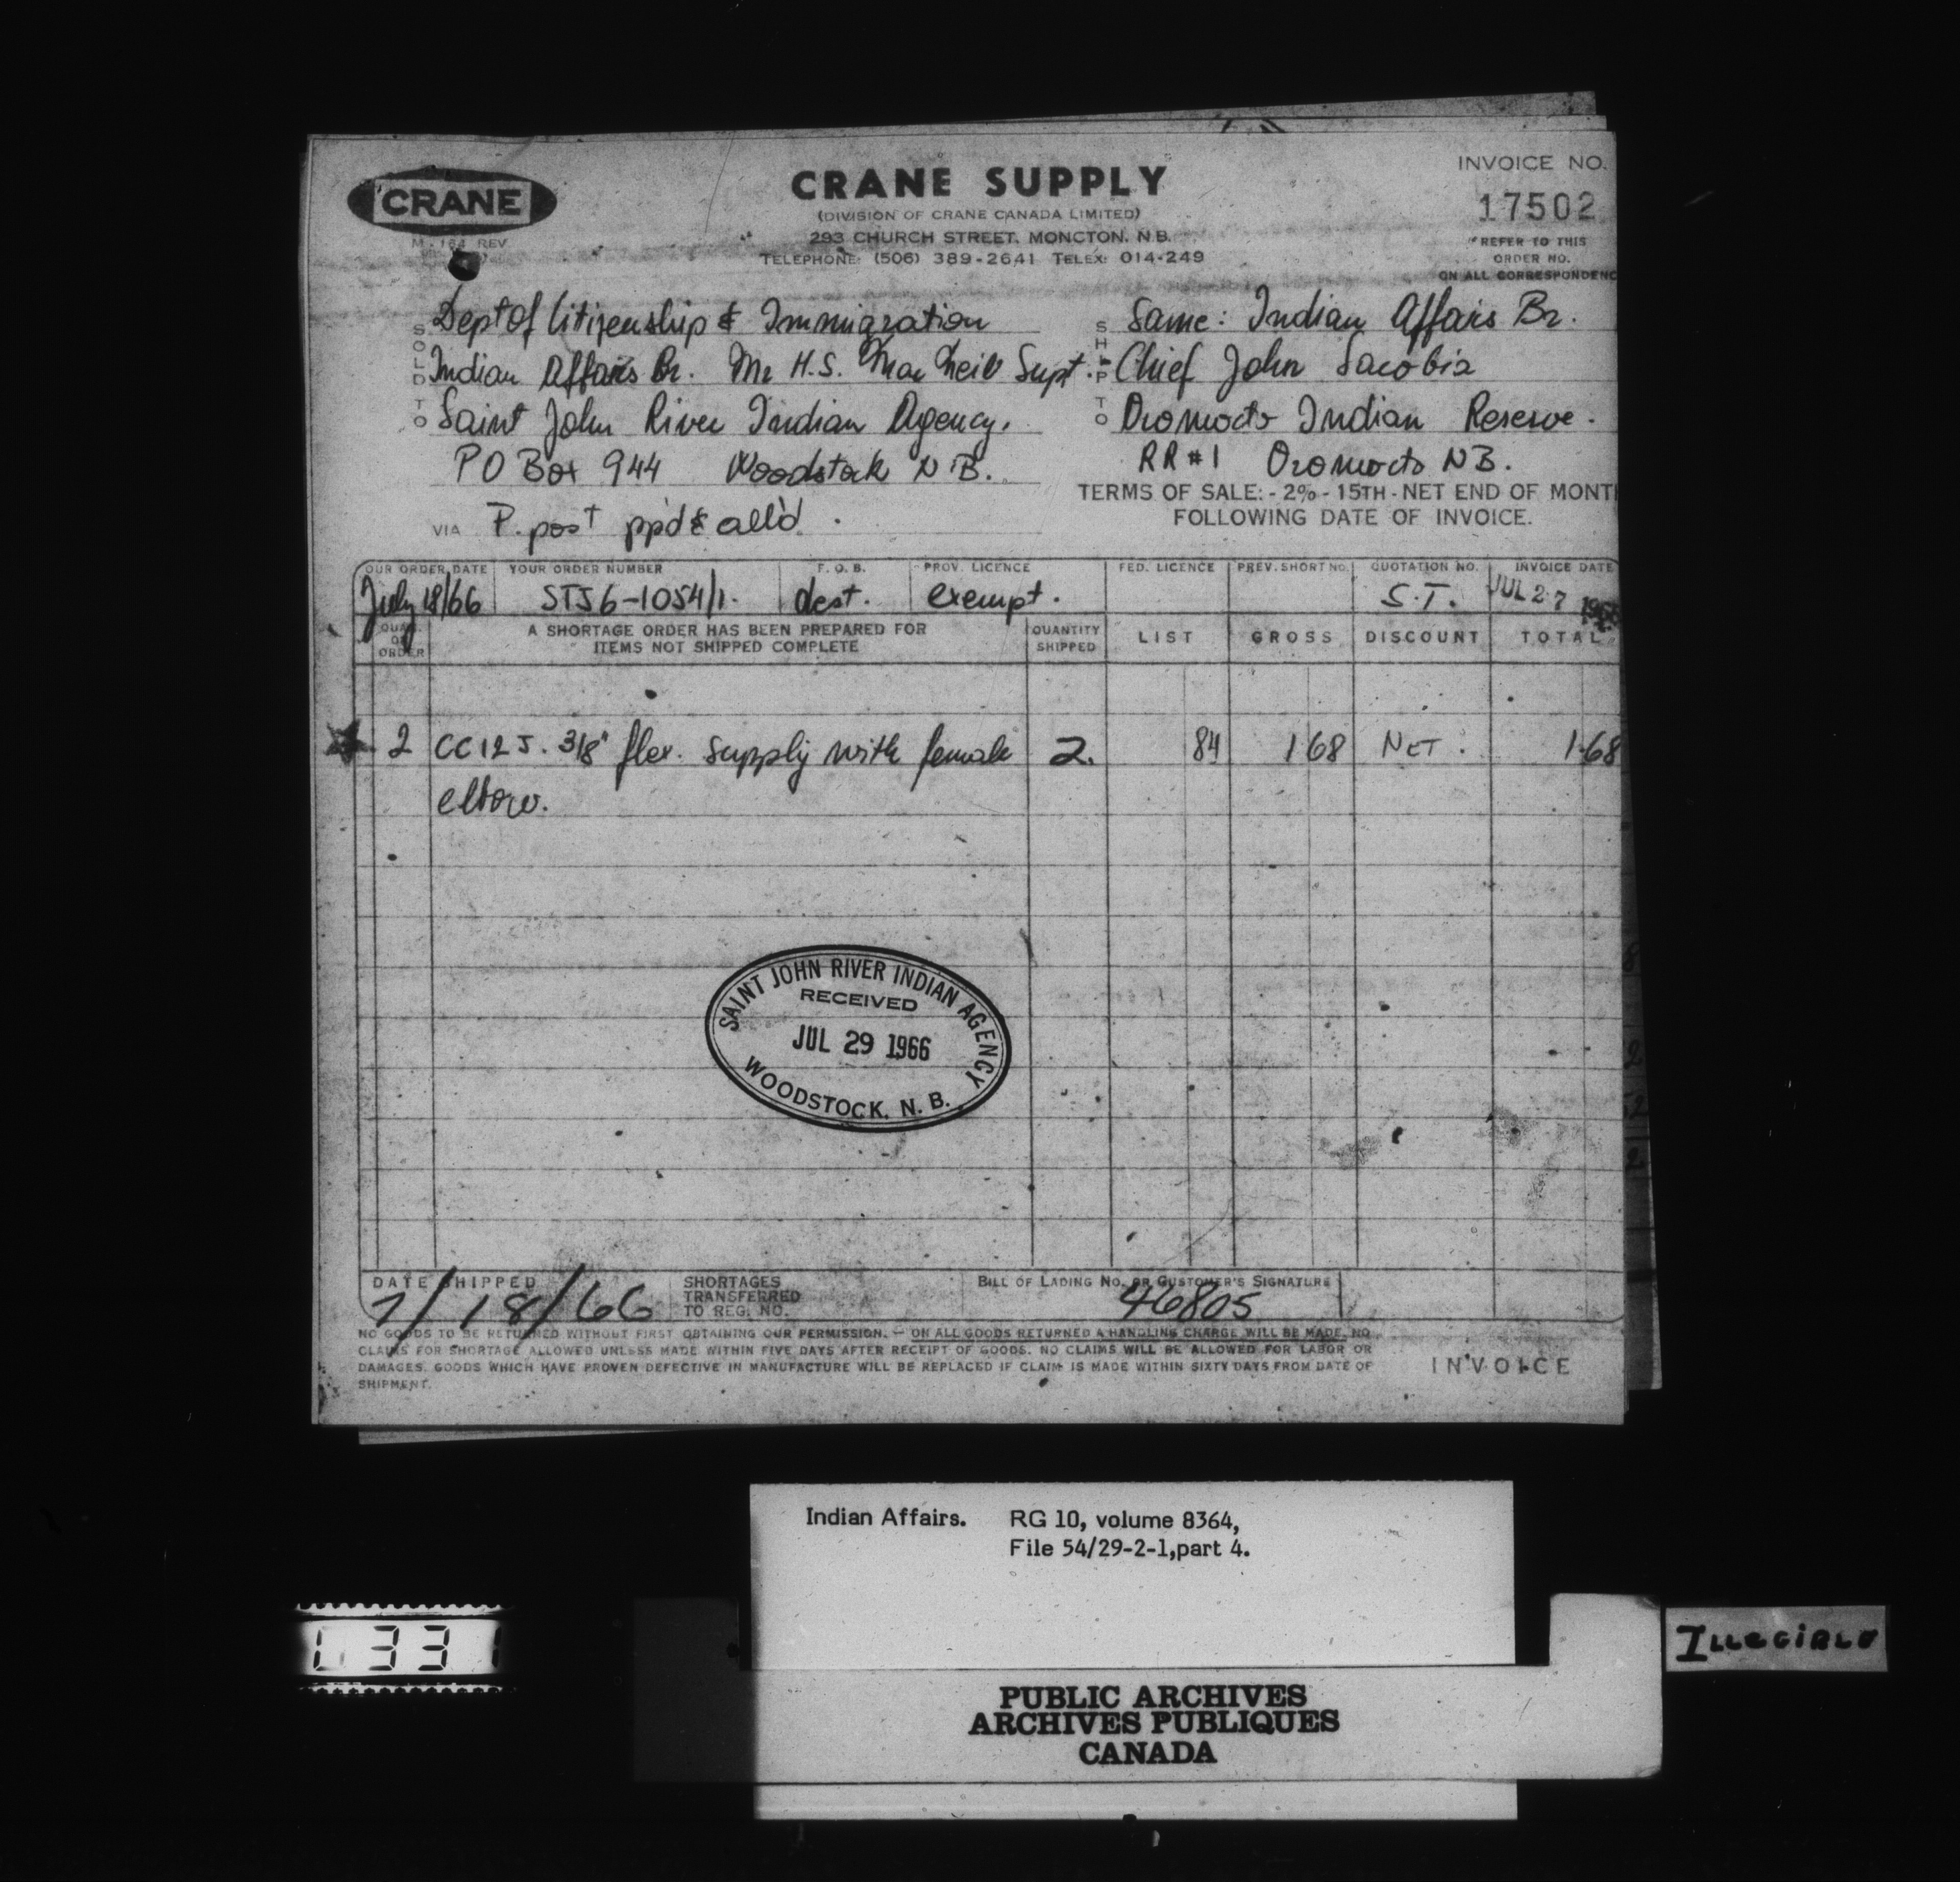 CRANE
M-164 REV
CRANE SUPPLY
(DIVISION OF CRANE CANADA LIMITED)
293 CHURCH STREET, MONCTON, N.B.
TELEPHONE: (506) 389-2641 TELEX: 014-249
INVOICE NO.
17502
REFER TO THIS
ORDER NO.
ON ALL CORRESPONDENC
SOLD TO
Dept of Citizenship & Immigration
Indian Affairs Br. Mr H.S. MacNeill Supt.
Saint John River Indian Agency.
PO Box 944 Woodstock N B.
VIA P. post ppd & all'd.
SHIP TO
Same: Indian Affairs Br.
Chief John Sacobia
Oromocto Indian Reserve.
RR#1 Oromocto NB.
TERMS OF SALE: - 2% - 15TH - NET END OF MONTH
FOLLOWING DATE OF INVOICE.
OUR ORDER DATE YOUR ORDER NUMBER F. O. B. PROV. LICENCE FED. LICENCE PREV. SHORT NO. QUOTATION NO. INVOICE DATE
July 18/66 STJ6-1054/1. dest. exempt. S.T. JUL 27 1966
QUAN. ON ORDER A SHORTAGE ORDER HAS BEEN PREPARED FOR ITEMS NOT SHIPPED COMPLETE QUANTITY SHIPPED LIST GROSS DISCOUNT TOTAL
2 CC12J. 3/8" flex. supply with female 2. 84 1 68 NET. 1.68
elbow.
SAINT JOHN RIVER INDIAN AGENCY
RECEIVED
JUL 29 1966
WOODSTOCK, N. B.
DATE SHIPPED
7/18/66
SHORTAGES
TRANSFERRED
TO REG. NO.
BILL OF LADING NO. OR CUSTOMER'S SIGNATURE
46805
NO GOODS TO BE RETURNED WITHOUT FIRST OBTAINING OUR PERMISSION. — ON ALL GOODS RETURNED A HANDLING CHARGE WILL BE MADE. NO
CLAIMS FOR SHORTAGE ALLOWED UNLESS MADE WITHIN FIVE DAYS AFTER RECEIPT OF GOODS. NO CLAIMS WILL BE ALLOWED FOR LABOR OR
DAMAGES. GOODS WHICH HAVE PROVEN DEFECTIVE IN MANUFACTURE WILL BE REPLACED IF CLAIM IS MADE WITHIN SIXTY DAYS FROM DATE OF
SHIPMENT.
INVOICE
Indian Affairs. RG 10, volume 8364,
File 54/29-2-1,part 4.
PUBLIC ARCHIVES
ARCHIVES PUBLIQUES
CANADA
ILLEGIBLE